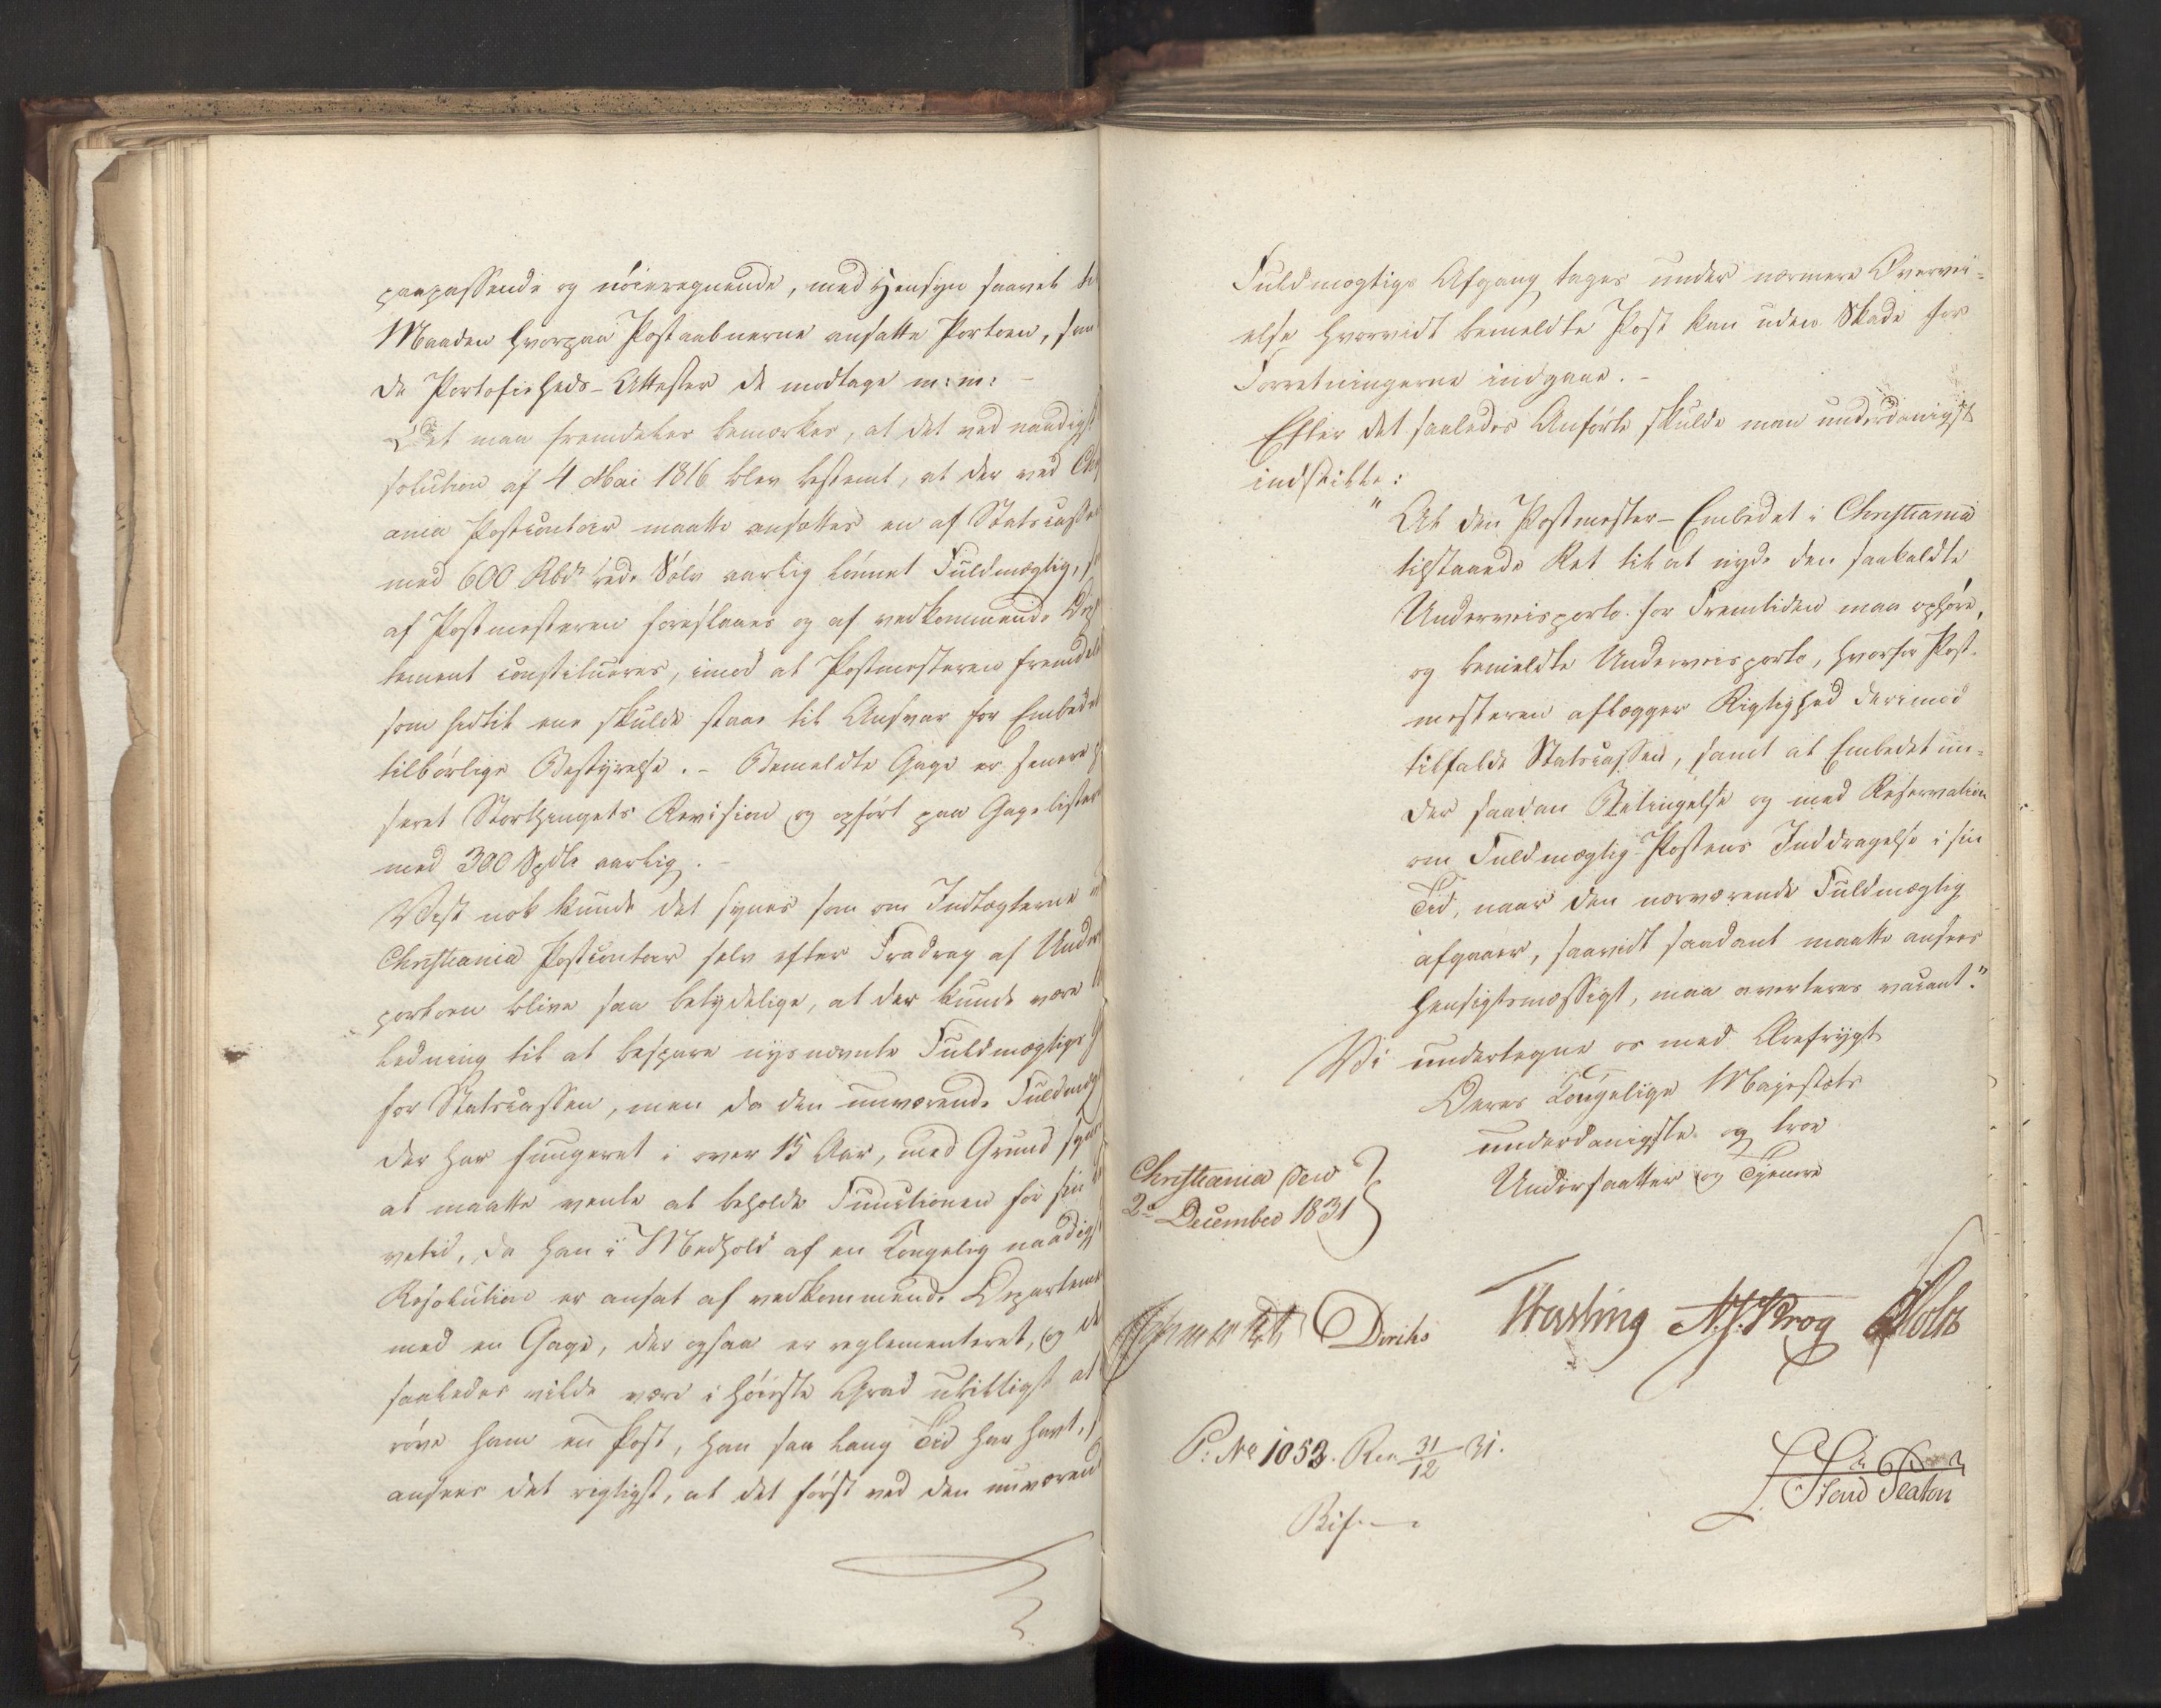 paapassende og nöieregnende, med Hensyn saavel til
Maaden hvorpaa Postaabnerne ansatte Portoen, som
de Portofriheds-Attester de modtage m: m: -
Det maa fremdeles bemærkes, at det ved naadigst
solution af 4 Mai 1816 blev bestemt, at der ved Chri
ania Postcontoir maatte ansættes en af Statscassen
med 600 Rbdr rede Sölv aarlig lönnet Fuldmægtig, 
af Postmesteren foreslaaes og af vedkommende Dep
tement constitueres, imod at Postmesteren fremdeles
som hidtil ene skulde staae til Ansvar for Embedets
tilbörlige Bestyrelse. - Bemeldte Gage er senere
seret Storthingets Revision og opfört paa Gagelisten
med 300 Spdlr aarlig. -
Vist nok kunde det synes som om Indtægterne
Christiania Postcontoir selv efter Fradrag af Under
portoen blive saa betydelige, at der kunde være
ledning til at bespare nysnævnte Fuldmægtigs
for Statscassen, men da den nuværende Fuldmæg
der har fungeret i over 15 Aar, med Grund synes
at maatte vente at beholde Functionen for sin
vetid, da han i Medhold af en Kongelig naadigst
Resolution er ansat af vedkommende Departement
med en Gage, der ogsaa er reglementeret, og det
saaledes vilde være i höieste Grad ubilligt at
röve ham en Post, han saa lang Tid har havt,
ansees det rigtigst, at det först ved den nuværende
Fuldmægtigs Afgang tages under nærmere Overvei=
else hvorvidt bemeldte Post kan uden Skade for
Forretningerne indgaae. -
Efter det saaledes Anförte skulde man underdanigst
indstille:
"At den Postmester-Embedet i Christiania
tilstaaede Ret til at nyde den saakaldte
Underveisporto for Fremtiden maa ophöre,
og bemeldte Underveisporto, hvorfor Post-
mesteren aflægger Rigtighed derimod
tilfalde Statscassen, samt at Embedet un=
der saadan Betingelse og med Reservation
om Fuldmægtig-Postens Inddragelse i sin
Tid, naar den nærværende Fuldmægtig
afgaaer, saavidt saadant maatte ansees
hensigtsmæssigt, maa averteres vacant."
Vi undertegne os med Ærefrygt
Deres Kongelige Majestæts
underdanigste og troe
Undersaatter og Tjenere
Christiania den
2 December 1831
Diriks Krog Holst
P: No 1052. Res 31/12 31.
Bif.